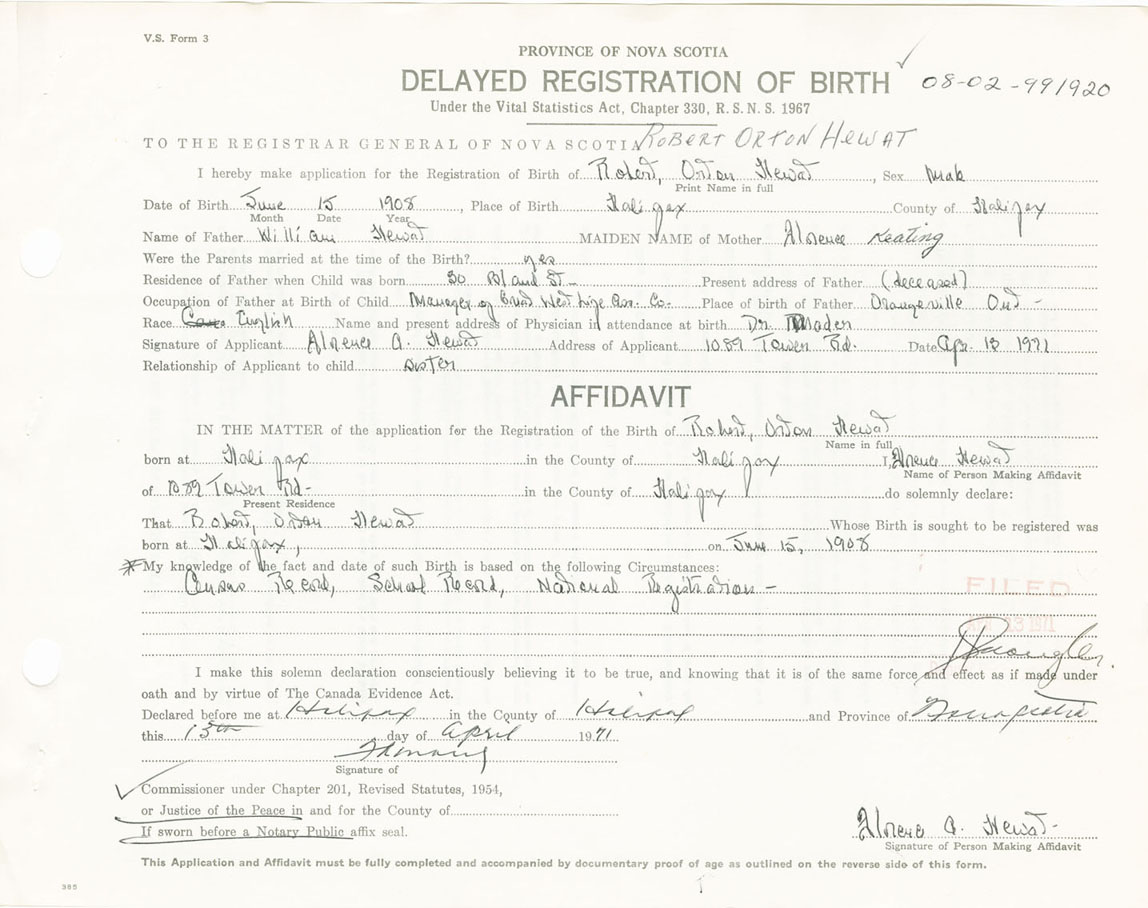 V.S. Form 3
PROVINCE OF NOVA SCOTIA
DELAYED REGISTRATION OF BIRTH 08-02-991920
Under the Vital Statistics Act, Chapter 330, R.S.N.S. 1967
TO THE REGISTRAR GENERAL OF NOVA SCOTIA ROBERT ORTON HEWAT
I hereby make application for the Registration of Birth of Robert, Orton Hewat, Sex Male
Print Name in full
Date of Birth June 15 1908, Place of Birth Halifax County of Halifax
Month Date Year
Name of Father William Hewat MAIDEN NAME of Mother Florence Keating
Were the Parents married at the time of the Birth? yes
Residence of Father when Child was born 30 Bland St- Present address of Father (deceased)
Occupation of Father at Birth of Child Manager of West Life Co. Place of birth of Father Orangeville Ont-
Race English Name and present address of Physician in attendance at birth Dr. Mader
Signature of Applicant Florence A. Hewat Address of Applicant 1089 Tower Rd. Date Apr. 13 1971
Relationship of Applicant to child sister
AFFIDAVIT
IN THE MATTER of the application for the Registration of the Birth of Robert, Orton Hewat
Name in full
born at Halifax in the County of Halifax I, Florence Hewat
Name of Person Making Affidavit
of 1089 Tower Rd- in the County of Halifax do solemnly declare:
Present Residence
That Robert, Orton Hewat Whose Birth is sought to be registered was
born at Halifax, on June 15, 1908
*My knowledge of the fact and date of such Birth is based on the following Circumstances:
Census Record, School Record, National Registration-
FILED
APR 13 1971
I make this solemn declaration conscientiously believing it to be true, and knowing that it is of the same force and effect as if made under
oath and by virtue of The Canada Evidence Act.
Declared before me at Halifax in the County of Halifax and Province of Nova Scotia
this 13th day of April 1971
Signature of
Commissioner under Chapter 201, Revised Statutes, 1954,
or Justice of the Peace in and for the County of
If sworn before a Notary Public affix seal.
Florence A. Hewat-
Signature of Person Making Affidavit
This Application and Affidavit must be fully completed and accompanied by documentary proof of age as outlined on the reverse side of this form.
385